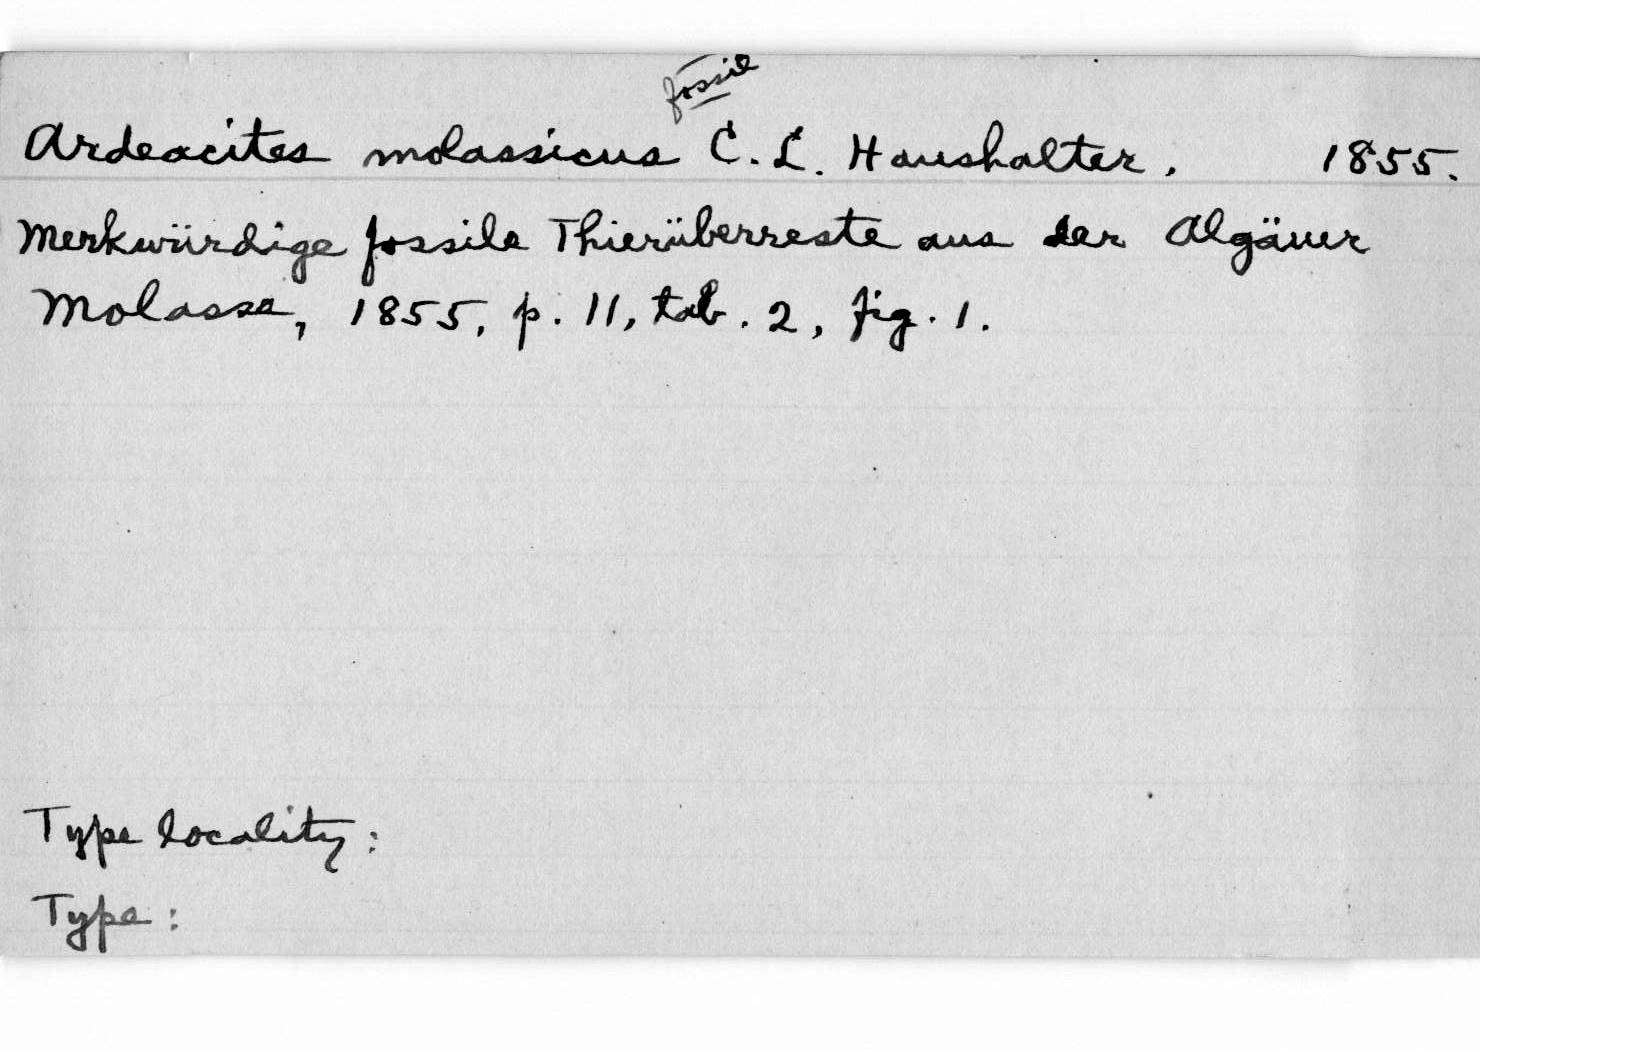 fossil
Ardeacites molassicus C. L. Haushalter, 1855.
Merkwürdige fossile Thierüberreste aus der Algäuer
Molasse, 1855, p. 11, tab. 2, fig. 1.
Type locality:
Type: